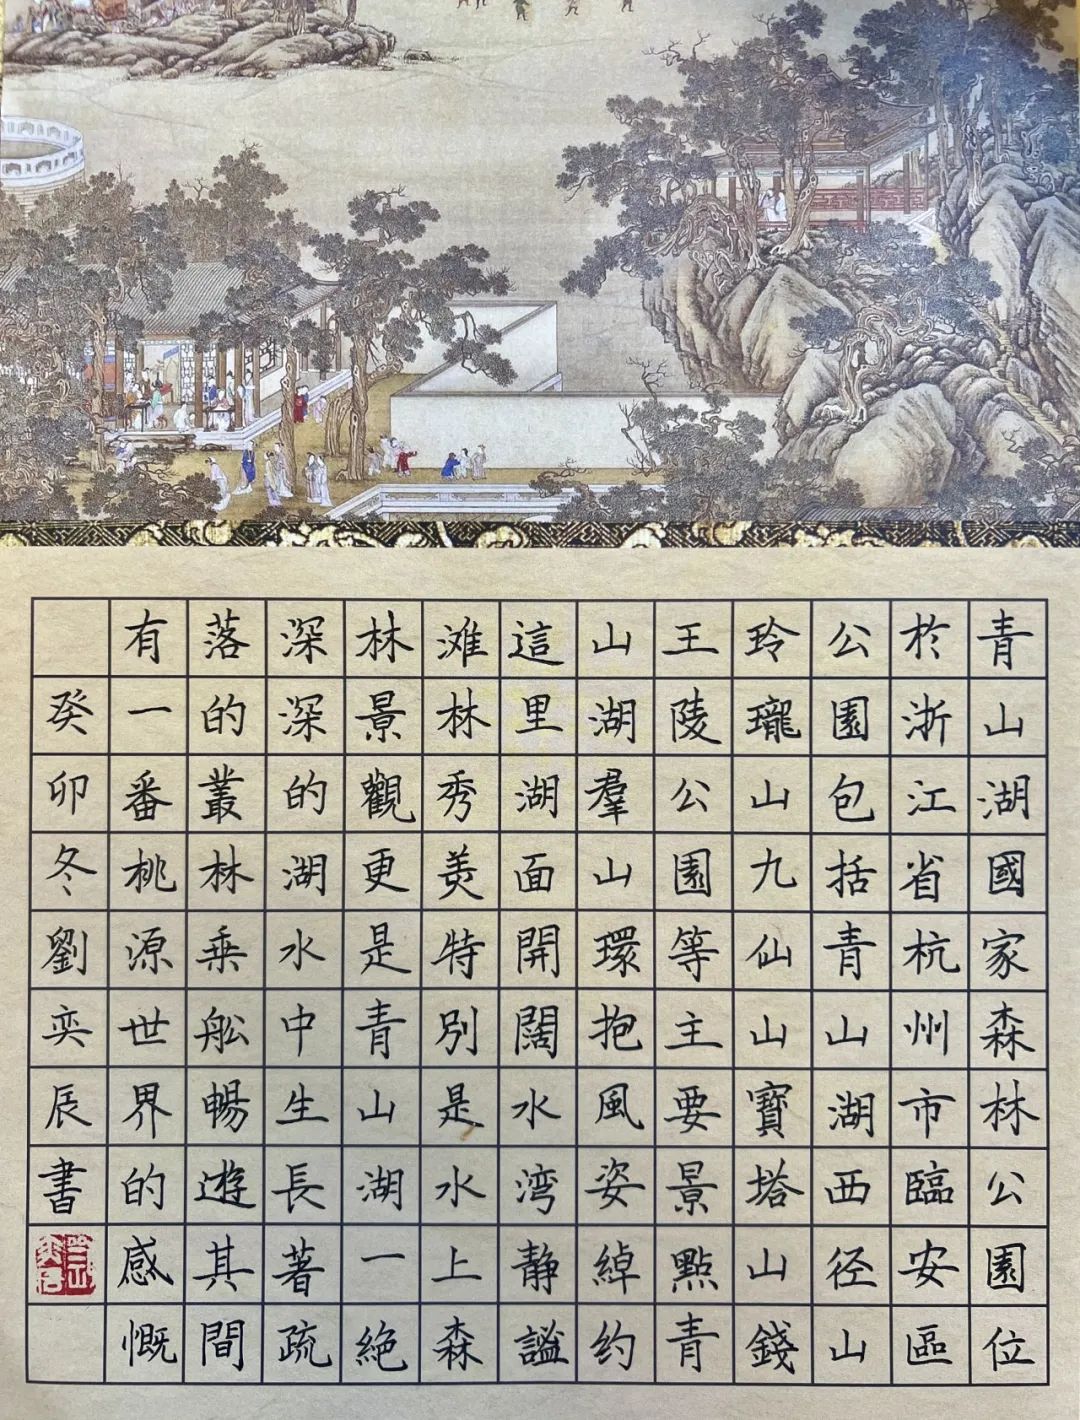 青山湖國家森林公園位
於浙江省杭州市臨安區
公園包括青山湖西径山
玲瓏山九仙山寶塔山錢
王陵公園等主要景點青
山湖羣山環抱風姿綽约
這里湖面開闊水湾静謐
滩林秀美特别是水上森
林景觀更是青山湖一絶
深深的湖水中生長著疏
落的叢林乗舩暢遊其間
有一番桃源世界的感慨
癸卯冬劉奕辰書